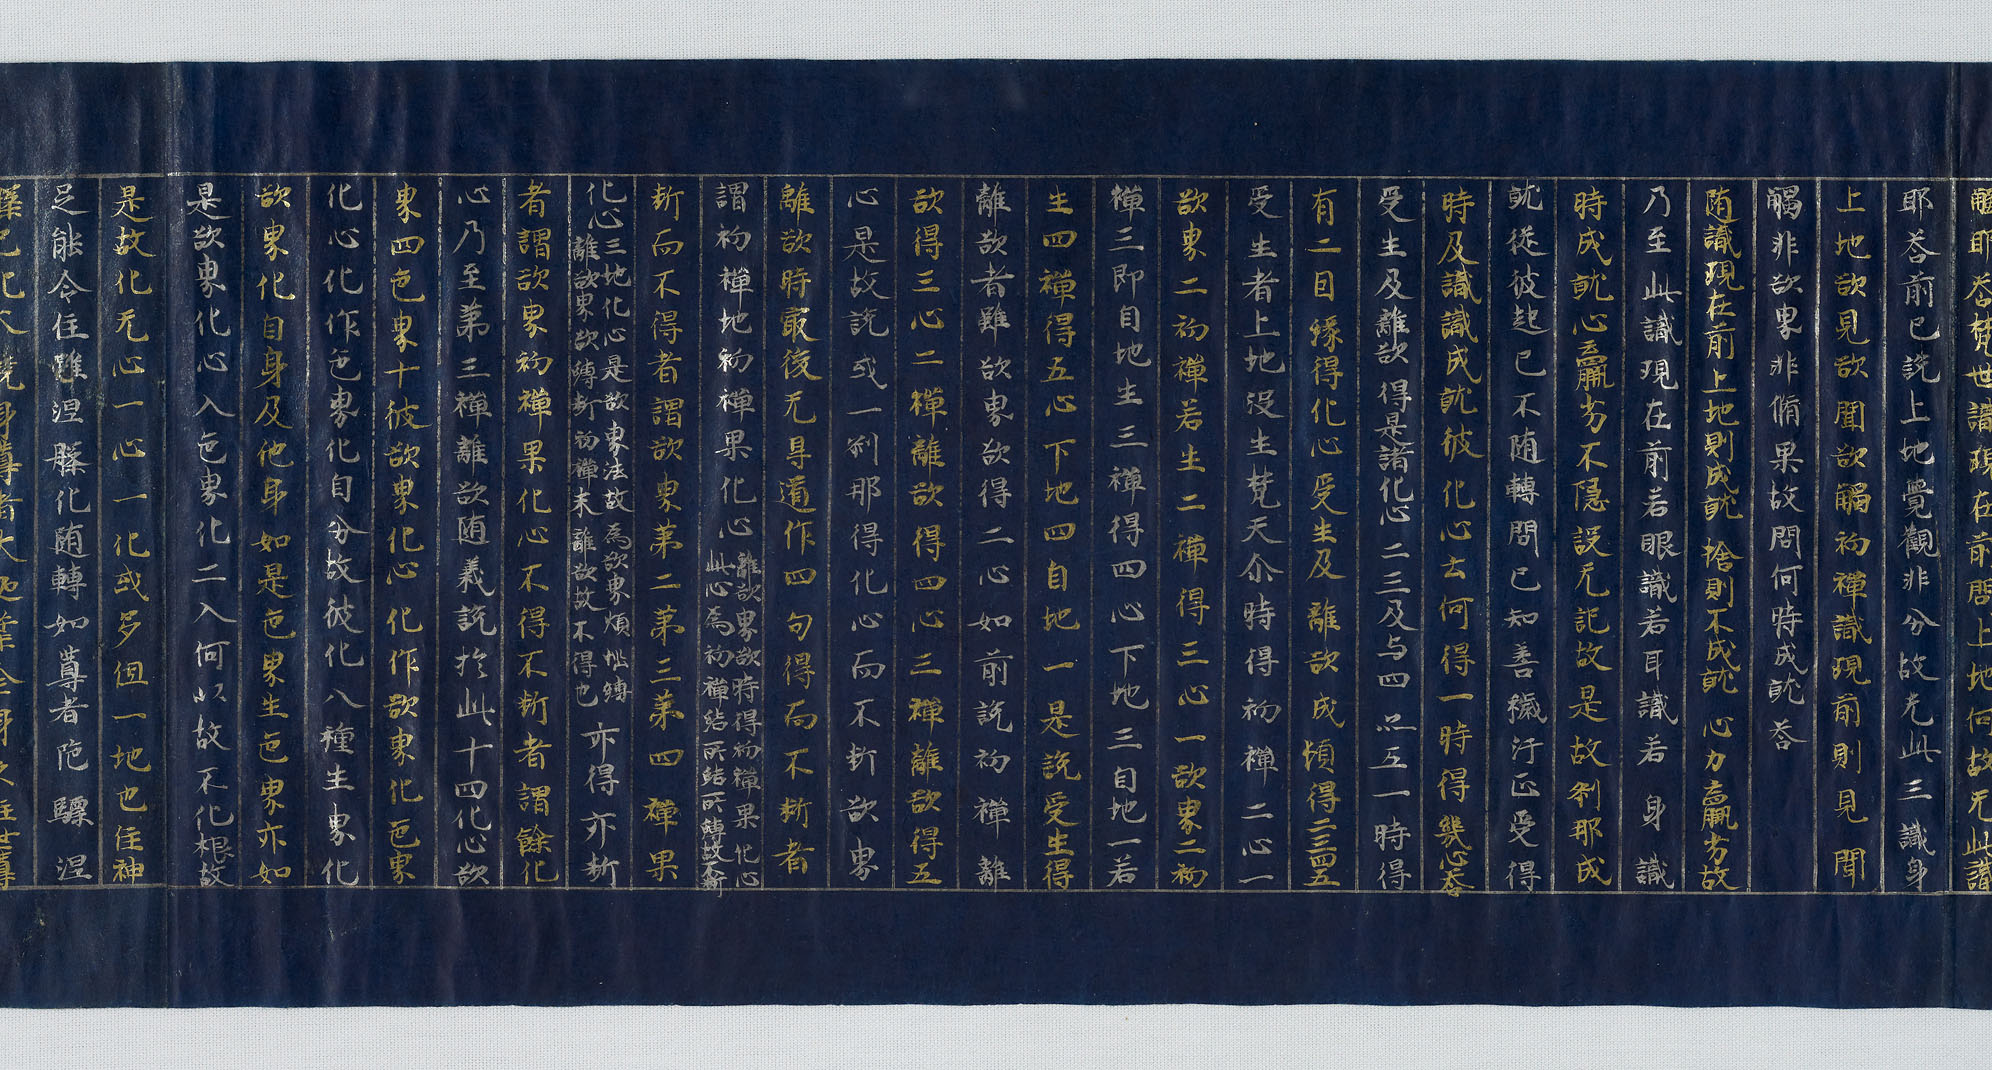 觸耶荅梵世識現在前問上地何故无此識
耶荅前已說上地覺觀非分故无此三識身
上地欲見欲聞欲觸初禪識現前則見聞
觸非欲界非脩果故問何時成就荅
随識現在前上地則成就捨則不成就心力羸劣故
乃至此識現在前若眼識若耳識若身識
時成就心羸劣不隱設无記故是故剎那成
就從彼起已不随轉問已知善穢汙正受得
時及識識成就彼化心云何得一時得幾心荅
受生及離欲得是諸化心二三及与四亦五一時得
有二因緣得化心受生及離欲成頓得二三四五
受生者上地沒生梵天尒時得初禪二心一
欲界二初禪若生二禪得三心一欲界二初
禪三即自地生三禪得四心下地三自地一若
生四禪得五心下地四自地一是說受生得
離欲者雖欲界欲得二心如前說初禪離
欲得三心二禪離欲得四心三禪離欲得五
心是故說或一剎那得化心而不断欲界
離欲時寂後无㝵道作四句得而不断者
謂初禪地初禪果化心離欲界欲時得初禪果化心此心為初禪結所結所縛故不断
断而不得者謂欲界第二第三第四禪果
化心三地化心是欲界法故為欲界煩惱縛離欲界欲縛断初禪未離欲故不得也亦得亦断
者謂欲界初禪果化心不得不断者謂餘化
心乃至第三禪離欲随義說扵此十四化心欲
界四色界十彼欲界化心化作欲界化色界
化心化作色界化自分故彼化八種生界化
欲界化自身及他身如是色界生色界亦如
是欲界化心入色界化二入何以故不化根故
是故化无心一心一化或多但一地也住神
足能令住雖涅槃化随轉如尊者陁驃涅
槃已化火燒身尊者大迦葉全身久住世尊